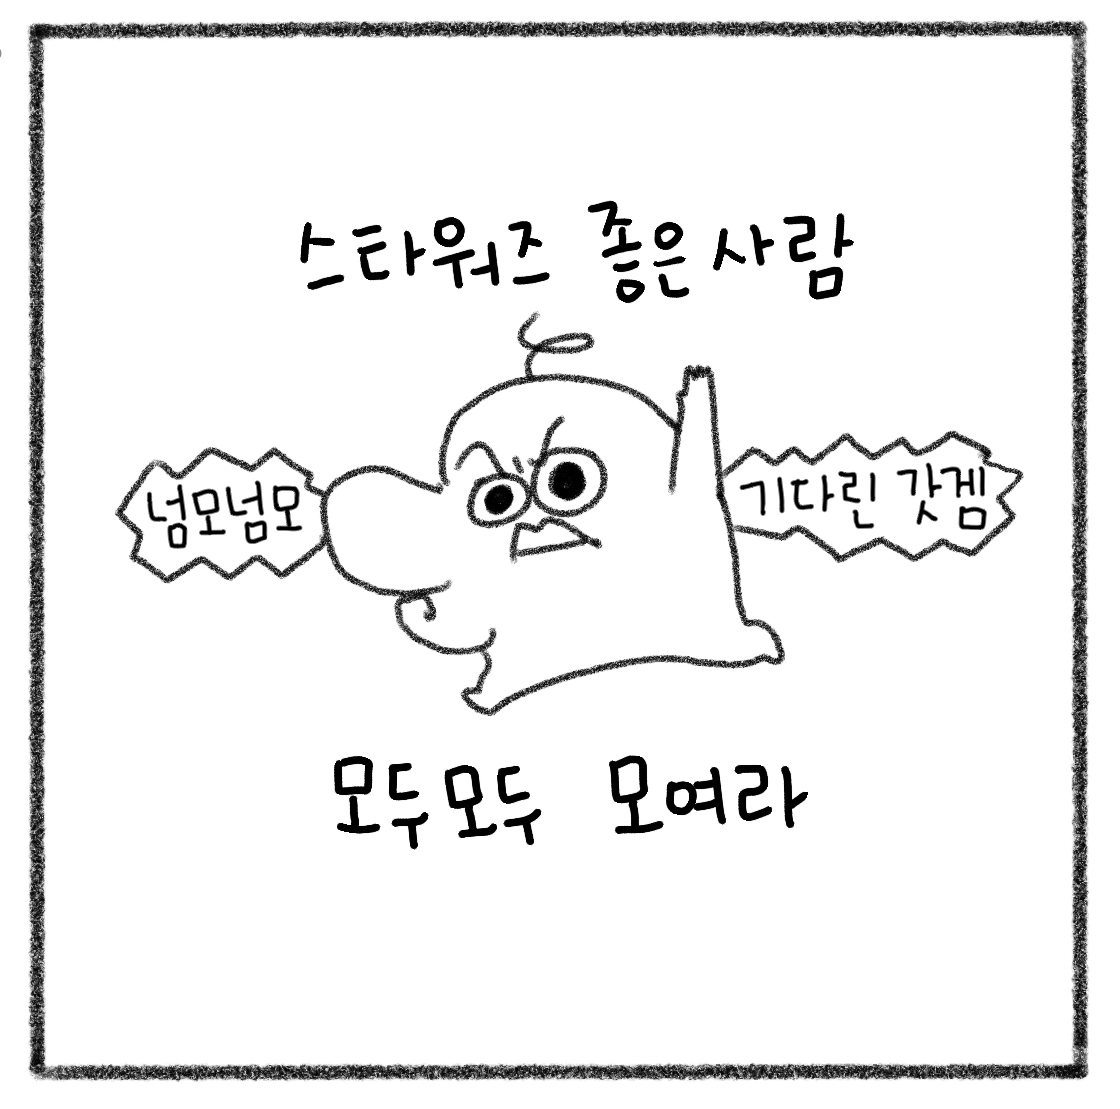 스타워즈 좋은사람
넘모넘모
기다린 갓겜
모두모두 모여라